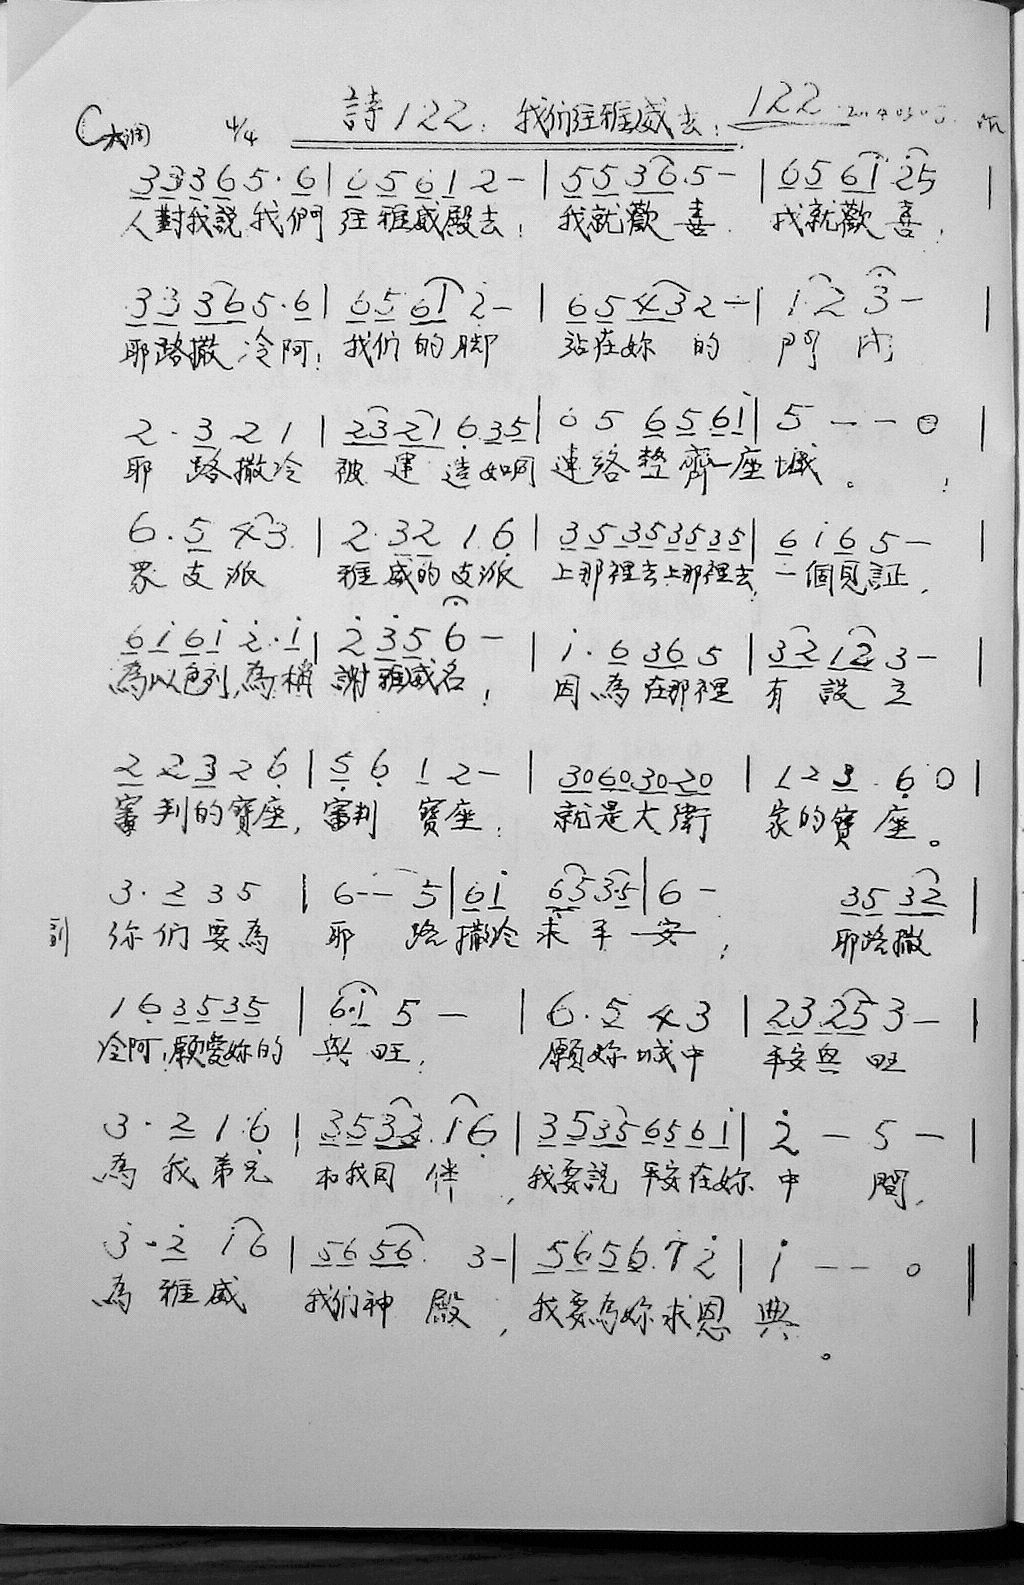 C大調 4/4 詩122: 我们往雅威去: 122
3 3 3 6 5 · 6 | 6 5 6 1 2 – | 5 5 3 6 · 5 – | 6 5 6 i 2 5 |
人對我説我們 往雅威殿去; 我就歡喜. 我就歡喜;
3 3 3 6 5 · 6 | 6 5 6 1 2 – | 6 5 4 3 2 – | 1 · 2 3 – |
耶路撒冷阿; 我们的脚 站在妳的 門内
2 · 3 2 1 | 2 3 2 1 6 3 5 | 6 5 6 5 6 i | 5 – – 0 |
耶路撒冷 被建造如同 連絡整齊一座城。;
6 · 5 4 3 | 2 · 3 2 1 6 | 3 5 3 5 3 5 3 5 | 6 i 6 5 – |
眾支派 雅威的支派 上那裡去上那裡去, 一個見証,
6 i 6 i 2 · i | 2 3 5 6 – | i · 6 3 6 5 | 3 2 1 2 3 – |
為以色列,為稱 謝雅威名; 因為在那裡 有設立
2 2 3 2 6 | 5 6 1 2 – | 3 0 6 0 3 0 2 0 | 1 2 3 · 6 0 |
審判的寶座, 審判寶座; 就是大衛 家的寶座。
3 · 2 3 5 | 6 – – 5 | 6 i 6 5 3 · 5 | 6 – 3 5 3 2 |
副 你們要為 耶路撒冷求平安; 耶路撒
1 6 3 5 3 5 | 6 · i 5 – | 6 · 5 4 3 | 2 3 2 5 3 – |
冷阿;願愛妳的 興旺; 願妳城中 平安興旺
3 · 2 1 6 | 3 5 3 2 · 1 6 | 3 5 3 5 6 5 6 i | 2 – 5 – |
為我弟兄 和我同伴, 我要説平安在妳中間,
3 · 2 i 6 | 5 6 5 6 · 3 – | 5 6 5 6 · 7 2 | i – – 0 |
為雅威 我们神殿, 我要為妳求恩典。